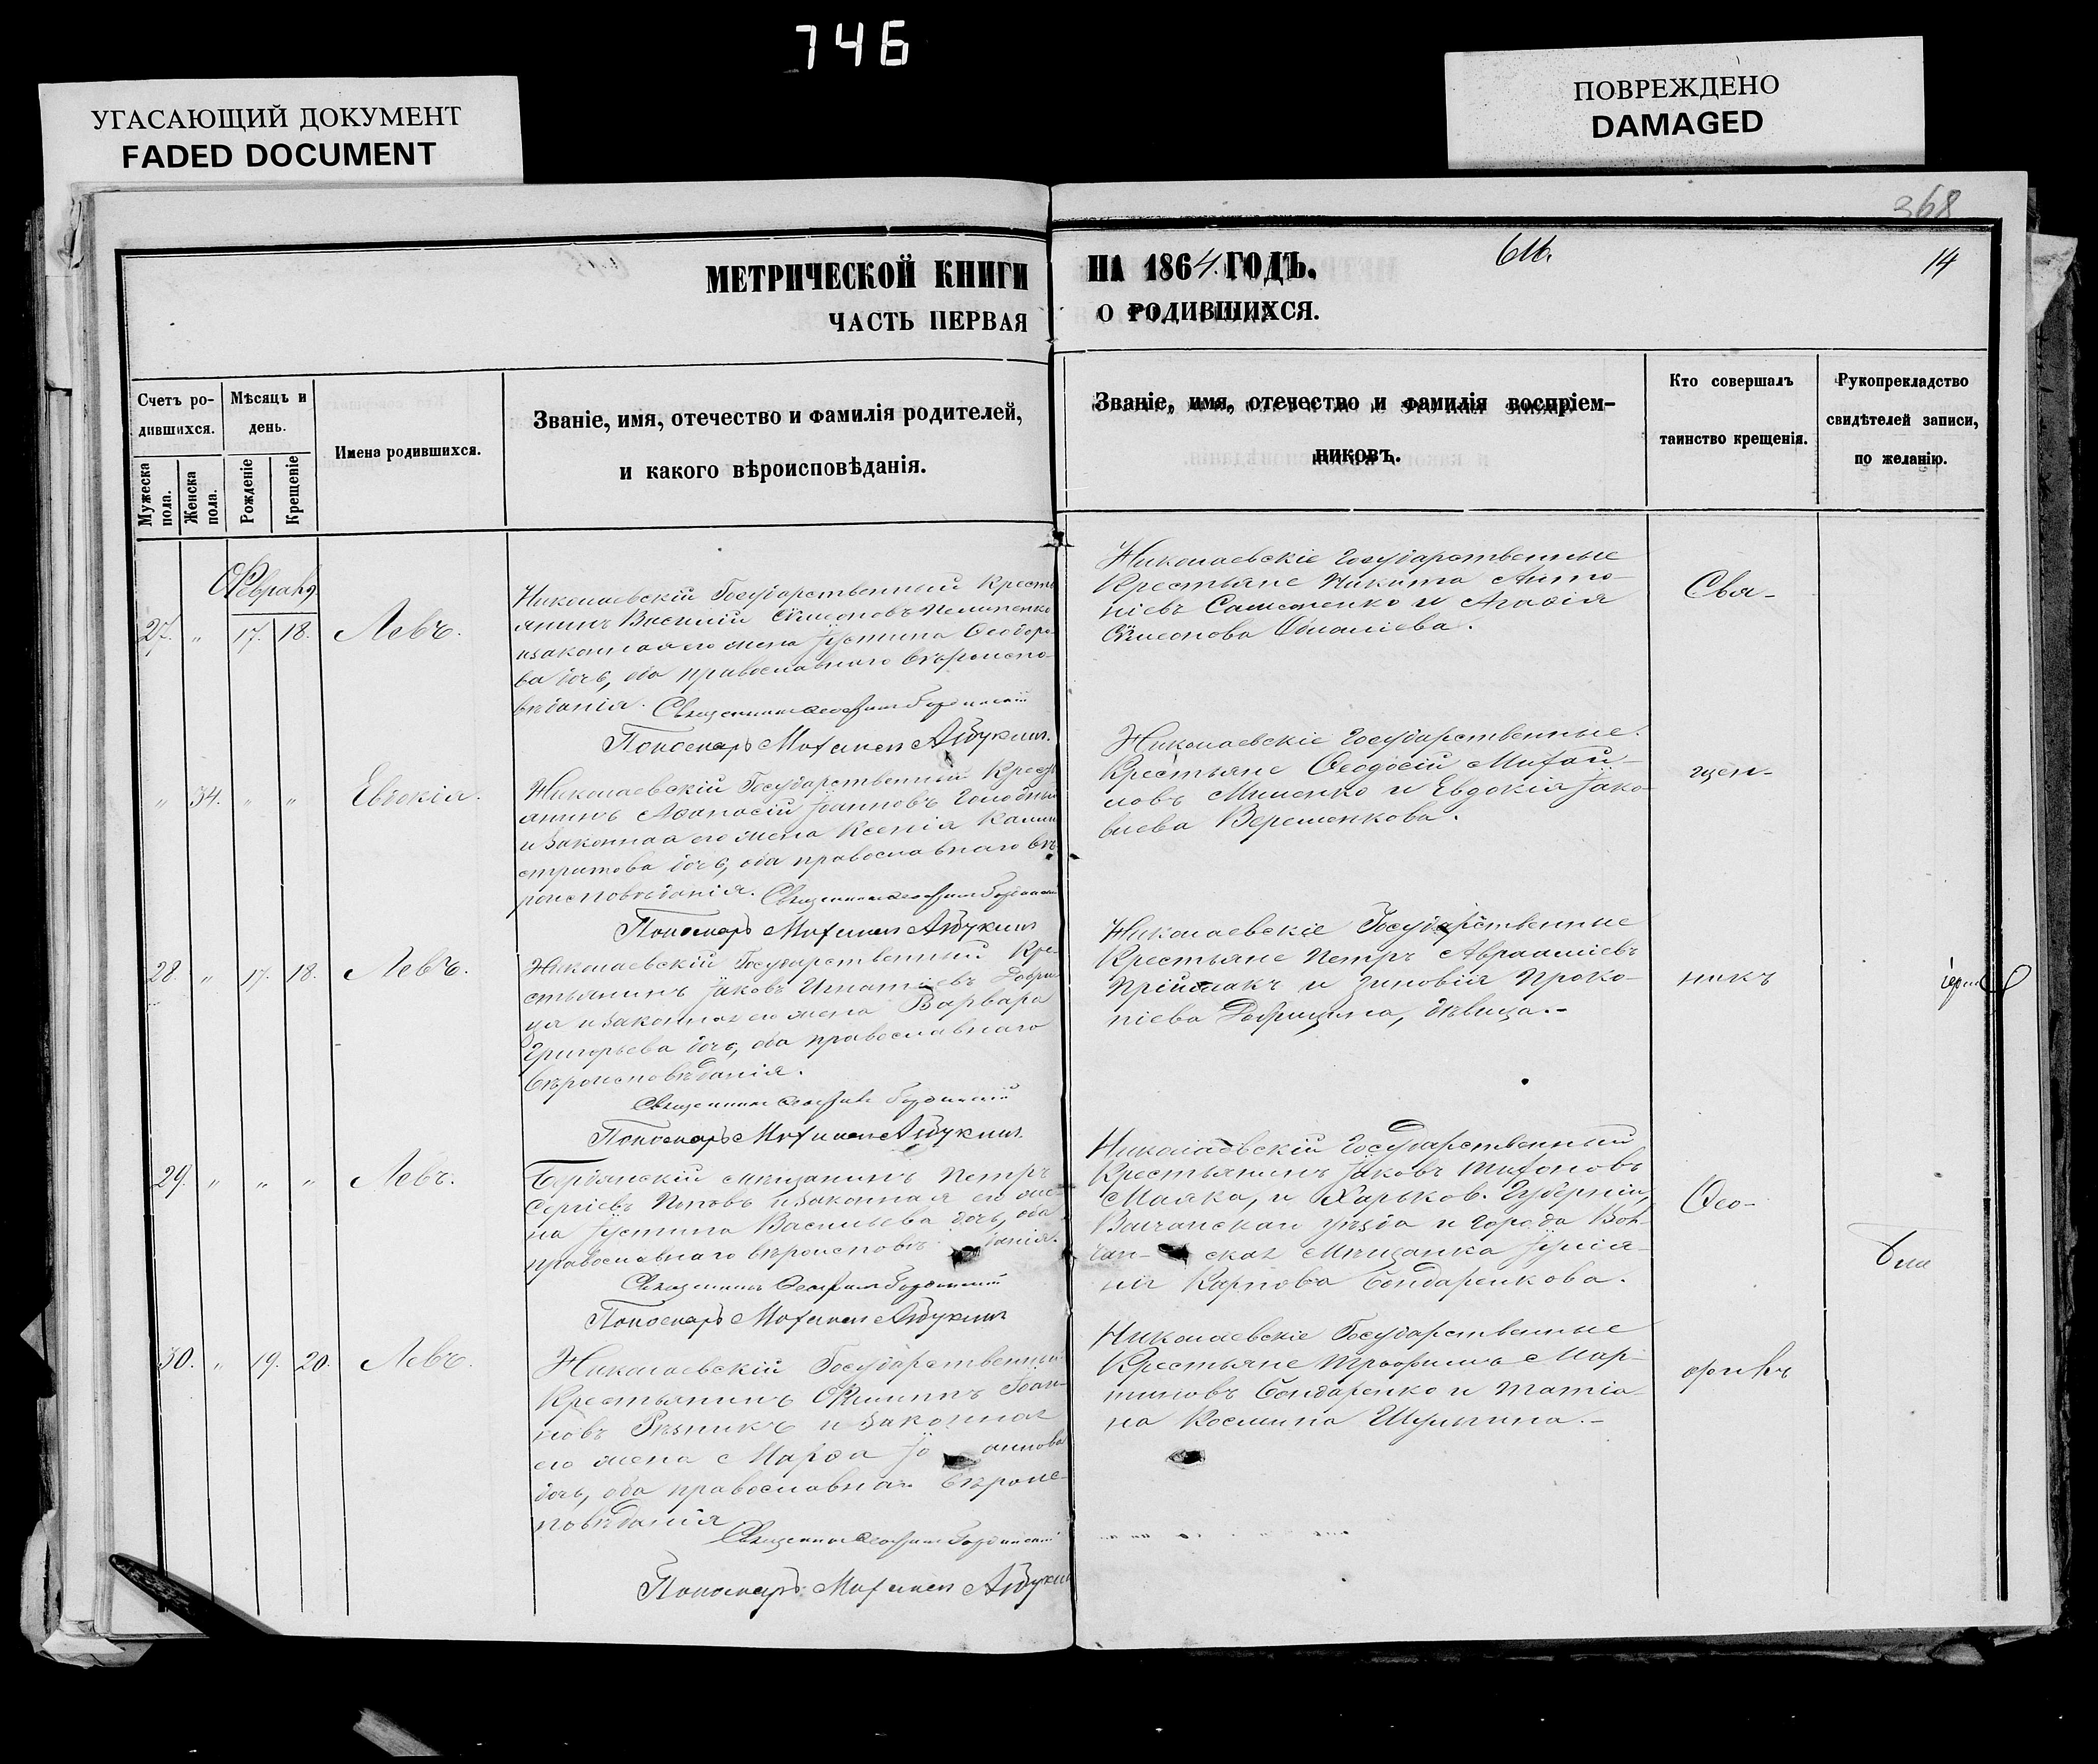 746
УГАСАЮЩИЙ ДОКУМЕНТ
FADED DOCUMENT
ПОВРЕЖДЕНО
DAMAGED
368
МЕТРИЧЕСКОЙ КНИГИ НА 1864 ГОДЪ.
14
ЧАСТЬ ПЕРВАЯ О РОДИВШИХСЯ.
Счетъ ро-
дившихся.
Мужеска пола.
Женска пола.
Мѣсяцъ и
день.
Рожденіе
Крещеніе
Имена родившихся.
Званіе, имя, отечество и фамилія родителей,
и какого вѣроисповѣданія.
Званіе, имя, отечество и фамилія воспріем-
никовъ.
Кто совершалъ
таинство крещенія.
Рукоприкладство
свидѣтелей записи,
по желанію.
Февраля
27. " 17. 18. Левъ.
Николаевскій Государственный Кресть
янинъ Василій Симеоновъ
и законная его жена Іустина Ѳеодоро-
ва дочь, оба православнаго вѣроиспо-
вѣданія. Священникъ
Пономарь
Николаевскіе Государственные
Крестьяне Никита Анто-
ніевъ и Агаѳія
Симеонова
Свя-
" 34. " " Евдокія.
Николаевскій Государственный Кресть
янинъ Аѳанасій Іоанновъ Голодный
и законная его жена Ксенія Калли
стратова дочь, оба православнаго вѣ
роисповѣданія. Священникъ
Пономарь
Николаевскіе Государственные
Крестьяне Ѳеодосій Михай-
ловъ Миненко и Евдокія Іако-
влева Веременкова.
щен-
28. " 17. 18. Левъ.
Николаевскій Государственный Кре-
стьянинъ Іаковъ Игнатіевъ Добри
ца и законная его жена Варвара
Григорьева дочь, оба православнаго
вѣроисповѣданія.
Священникъ
Пономарь
Николаевскіе Государственные
Крестьяне Петръ Авраамієвъ
Пріймакъ и Зиновія Проко-
піева Добрицина, дѣвица.-
никъ
29. " " " Левъ.
Бердянскій мѣщанинъ Петръ
Сергіевъ Поповъ и законная его же-
на Іустина Васильева дочь, оба
православнаго вѣроисповѣданія.
Священникъ
Пономарь
Николаевскій Государственный
Крестьянинъ Іаковъ Тихоновъ
Маяка, и Харьков. Губерніи,
Волчанскаго уѣзда и города Вол-
чан- ская мѣщанка Іуліа-
нія Карпова Бондаренкова.
Ѳео-
30. " 19. 20. Левъ.
Николаевскій Государственный
Крестьянинъ Филиппъ Іоан-
новъ Рѣзникъ и законная
его жена Марѳа Іоаннова
дочь, оба православнаго вѣроис-
повѣданія
Священникъ
Пономарь
Николаевскіе Государственные
Крестьяне Трофимъ Мар-
тиновъ Бондаренко и Татіа-
на Космина Шульгина.-